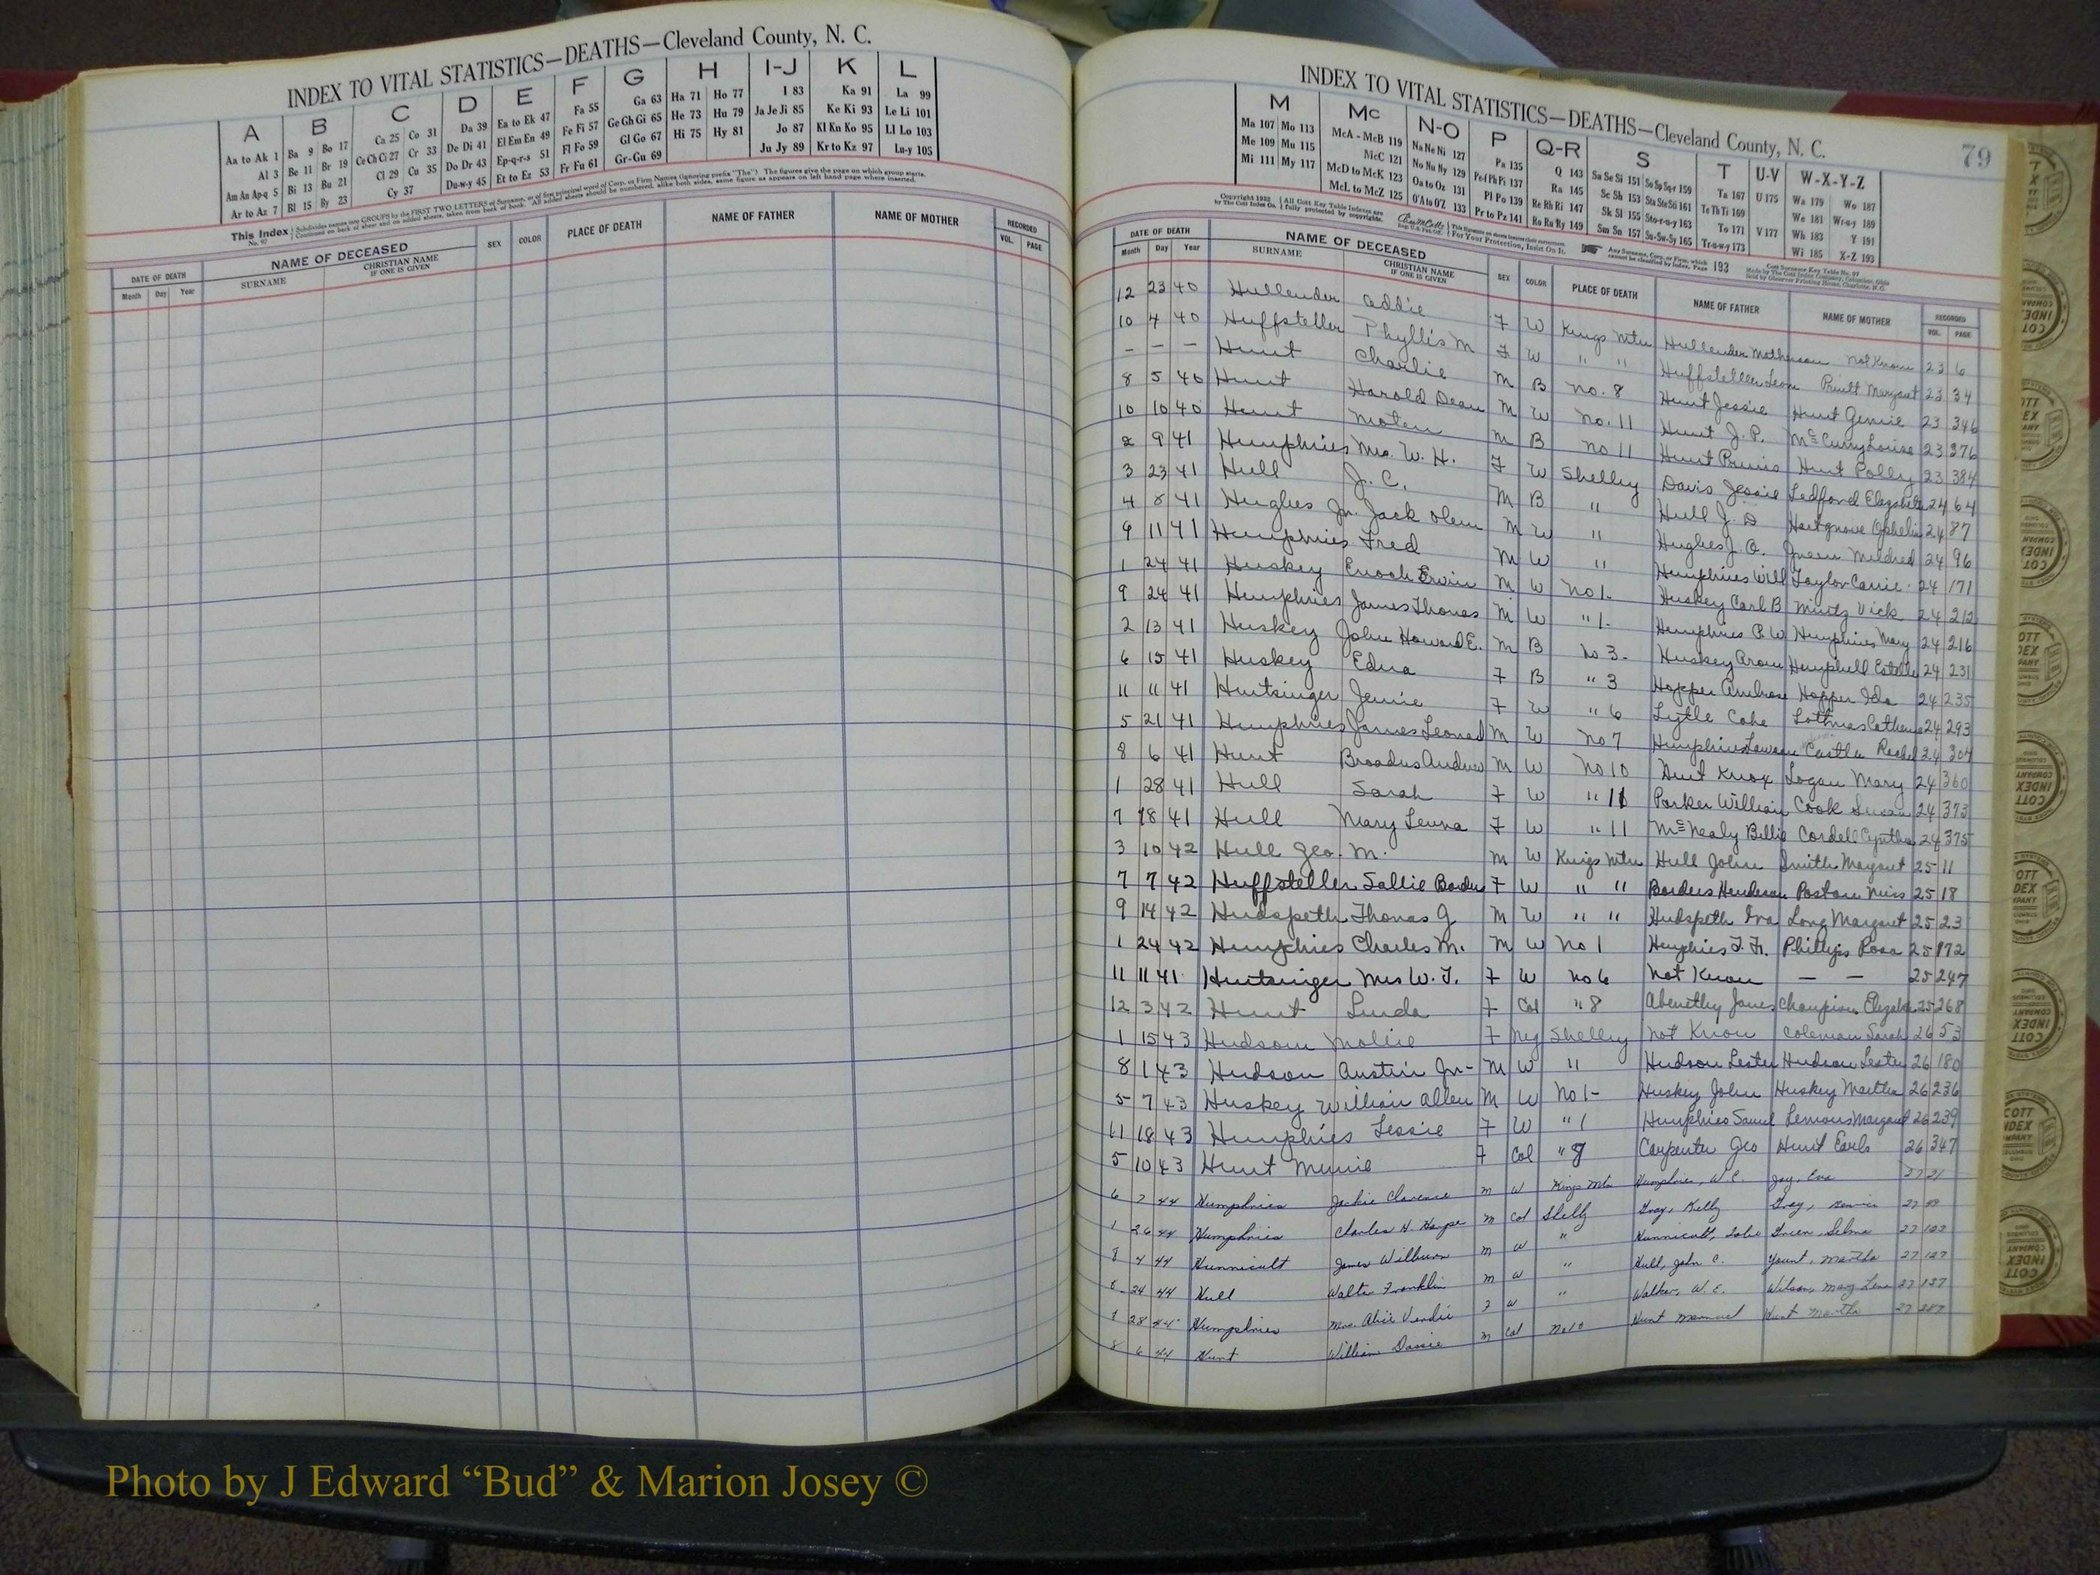 INDEX TO VITAL STATISTICS—DEATHS—Cleveland County, N. C.
A B C D E F G H I-J K L
Aa to Ak 1 Ba 9 Bo 17 Ca 25 Co 31 Da 39 Ea to Ek 47 Fa 55 Ga 63 Ha 71 Ho 77 I 83 Ka 91 La 99
Al 3 Be 11 Br 19 Ce Ch Ci 27 Cr 33 De Di 41 El Em En 49 Fe Fi 57 Ge Gh Gi 65 He 73 Hu 79 Ja Je Ji 85 Ke Ki 93 Le Li 101
Am An Ap-q 5 Bi 13 Bu 21 Cl 29 Cu 35 Do Dr 43 Ep-q-r-s 51 Fl Fo 59 Gl Go 67 Hi 75 Hy 81 Jo 87 Kl Kn Ko 95 Ll Lo 103
Ar to Az 7 Bl 15 By 23 Cy 37 Du-w-y 45 Et to Ez 53 Fr Fu 61 Gr-Gu 69 Ju Jy 89 Kr to Kz 97 Lu-y 105
This Index No. 97 Subdivides names into GROUPS by the FIRST TWO LETTERS of Surname, or of first principal word of Corp. or Firm Names (ignoring prefix "The"). The figures give the page on which group starts.
Continued on back of sheet and on added sheets, taken from back of book. All added sheets should be numbered, alike both sides, same figure as appears on left hand page where inserted.
DATE OF DEATH NAME OF DECEASED SEX COLOR PLACE OF DEATH NAME OF FATHER NAME OF MOTHER RECORDED
Month Day Year SURNAME CHRISTIAN NAME IF ONE IS GIVEN VOL. PAGE
INDEX TO VITAL STATISTICS—DEATHS—Cleveland County, N. C.
79
M Mc N-O P Q-R S T U-V W-X-Y-Z
Ma 107 Mo 113 McA - McB 119 Na Ne Ni 127 Pa 135 Q 143 Sa Se Si 151 So Sp Sq-r 159 Ta 167 U 175 Wa 179 Wo 187
Me 109 Mu 115 McC 121 No Nu Ny 129 Pe-f Ph Pi 137 Ra 145 Sc Sh 153 Sta Ste Sti 161 Te Th Ti 169 We 181 Wr-u-y 189
Mi 111 My 117 McD to McK 123 Oa to Oz 131 Pl Po 139 Re Rh Ri 147 Sk Sl 155 Sto-r-u-y 163 To 171 V 177 Wh 183 Y 191
McL to McZ 125 O'A to O'Z 133 Pr to Pz 141 Ro Ru Ry 149 Sm Sn 157 Su-Sw-Sy 165 Tr-u-w-y 173 Wi 185 X-Z 193
Copyright 1932 by The Cott Index Co. All Cott Key Table Indexes are fully protected by copyrights. For Your Protection, Insist On It. 193
DATE OF DEATH NAME OF DECEASED SEX COLOR PLACE OF DEATH NAME OF FATHER NAME OF MOTHER RECORDED
Month Day Year SURNAME CHRISTIAN NAME IF ONE IS GIVEN VOL. PAGE
12 23 40 Hullender Addie F W Kings Mtn Hullender Not Known 23 6
10 4 40 Huffsteller Phyllis M F W " " Huffsteller Leon Pruitt Margaret 23 34
— — — Hunt Charlie M B No. 8 Hunt Jessie Hunt Genie 23 346
8 5 40 Hunt Harold Dean M W No. 11 Hunt J. P. McCurry Louise 23 276
10 10 40 Hunt Moten M B No 11 Hunt Hunt Polly 23 384
2 9 41 Humphries Mrs. W. H. F W Shelby Davis Jessie Ledford Elizabeth 24 64
3 23 41 Hull J. C. M B " Hull J. D Hartgrove Ophelia 24 87
4 8 41 Hughes Jr. Jack Olem M W " Hughes J. O. Green Mildred 24 96
9 11 41 Humphries Fred M W " Humphries Will Taylor Carrie 24 171
1 24 41 Huskey Enoch Ervin M W No 1. Huskey Carl B Mintz Vick 24 212
9 24 41 Humphries James Thomas M W " 1. Humphries P. W Humphries Mary 24 216
2 13 41 Huskey John Howard E. M B No 3. Huskey Hemphill Estelle 24 231
6 15 41 Huskey Edna F B " 3 Hopper Ambrose Hopper Ida 24 235
11 11 41 Huntsinger Jennie F W " 6 Lytle Cahe 24 293
5 21 41 Humphries James Leonard M W No 7 Humphries 24 307
8 6 41 Hunt Broadus Andrew M W No 10 Hunt Knox Logan Mary 24 360
1 28 41 Hull Sarah F W " 11 Parker William Cook Susan 24 373
7 18 41 Hull Mary Leuna F W " 11 McNealy Billie Cordell Cynthia 24 375
3 10 42 Hull Geo. M. M W Kings Mtn Hull John Smith Margaret 25 11
7 7 42 Huffsteller Sallie Borders F W " " Borders Henderson Poston 25 18
9 14 42 Hudspeth Thomas G M W " " Hudspeth Ira Long Margaret 25 23
1 24 42 Humphries Charles M. M W No 1 Humphries Phillips Rosa 25 172
11 11 41 Huntsinger Mrs W. T. F W No 6 Not Known — — 25 247
12 3 42 Hunt Linda F Col " 8 Abernethy James Champion Elizabeth 25 268
1 15 43 Hudson Mollie F Neg Shelby Not Known Coleman Sarah 26 53
8 1 43 Hudson Austin Jr- M W " Hudson Lester Hudson Lester 26 180
5 7 43 Huskey William Allen M W No 1- Huskey John Huskey Martha 26 236
11 18 43 Humphries Lessie F W " 1 Humphries Samel Lemons Margaret 26 239
5 10 43 Hunt Minnie F Col " 8 Carpenter Geo Hunt Earls 26 347
6 2 44 Humphries Jackie Clarence M W Kings Mtn Humphries, W. C. Joy, Eva 27 21
1 26 44 Humphries Charles H. M Col Shelby Gray, Kelly Gray, 27
8 4 44 Hunnicutt James Wilburn M W " Hunnicutt, Green, Selma 27
24 44 Hull Walter Franklin M W " Hull, John C. Yount, Martha 27 127
28 44 Humphries Mrs. Alice Verdie F W " Walker, W. E. Wilson, Mary Lena 27 137
8 6 44 Hunt William M Col No 10 Hunt Hunt Martha 27 287
Photo by J Edward “Bud” & Marion Josey ©